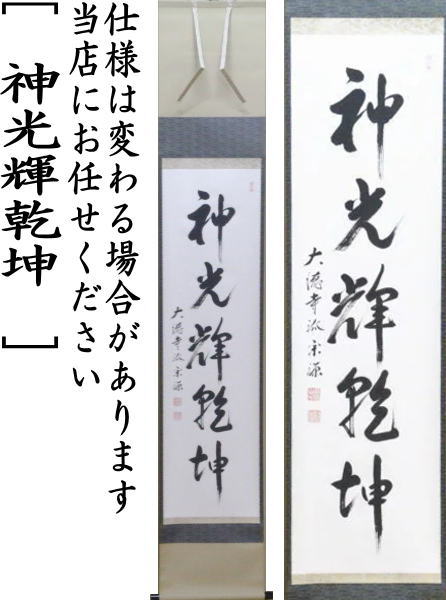 仕様は変わる場合があります
当店にお任せください
[ 神光輝乾坤 ]
神光輝乾坤
大徳寺派宗源
神光輝乾坤
大徳寺派宗源